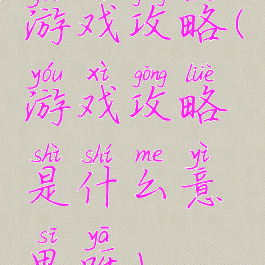 游戏攻略(
yóu xì gōng lüè
游戏攻略
shì shí me yì
是什么意
sī yā
思呀)